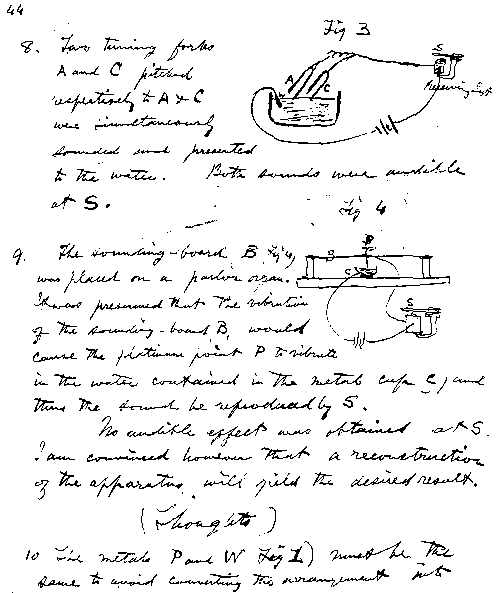 44
Fig 3
8. Two tuning forks
A and C pitched
respectively to A & C
were simultaneously
sounded and presented
to the water. Both sounds were audible
at S.
A
C
S
Receiving Inst
Fig 4
9. The sounding-board B Fig 4,
was placed on a parlor organ.
It was presumed that the vibration
of the sounding-board B, would
cause the platinum point P to vibrate
in the water contained in the metal cup C, and
thus the sound be reproduced by S.
B
S
C
S
No audible effect was obtained at S.
I am convinced however that a reconstruction
of the apparatus will yield the desired result.
(Thoughts)
10 The metals P and W Fig 1) must be the
same to avoid converting the arrangement into